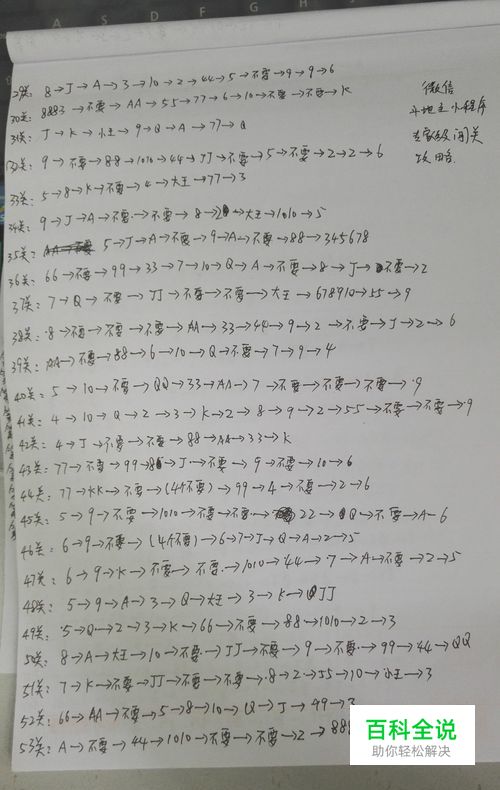 29关: 8→J→A→3→10→2→44→5→不要→9→9→6
30关: 8883→不要→AA→55→77→6→10→不要→不要→K
31关: J→K→小王→9→Q→A→77→Q
32关: 9→不要→88→1010→44→JJ→不要→5→不要→2→2→6
33关: 5→8→K→不要→4→大王→77→3
34关: 9→J→A→不要→不要→8→2→大王→1010→5
35关: 5→J→A→不要→9→A→不要→88→345678
36关: 66→不要→99→33→7→10→Q→A→不要→8→J→不要→2
37关: 7→Q→不要→JJ→不要→不要→大王→678910→55→9
38关: 8→不要→不要→不要→AA→33→44→9→2→不要→J→2→6
39关: AA→不要→88→6→10→Q→不要→7→9→4
40关: 5→10→不要→QQ→33→AA→7→不要→不要→不要→9
41关: 4→10→Q→2→3→K→2→8→9→2→55→不要→不要→9
42关: 4→J→不要→不要→88→AA→33→K
43关: 77→不要→99→8→J→不要→9→不要→10→6
44关: 77→KK→不要→(4个不要)→99→4→不要→2→6
45关: 5→9→不要→1010→不要→不要→22→Q→不要→A→6
46关: 6→9→不要→(4个不要)→6→7→J→Q→A→2→5
47关: 6→9→K→不要→不要→1010→44→7→A→不要→2→5
48关: 5→9→A→3→Q→大王→3→K→JJ
49关: 5→Q→2→3→K→66→不要→88→1010→2→3
50关: 8→A→大王→10→不要→JJ→不要→9→不要→99→44→QQ
51关: 7→K→不要→JJ→不要→不要→8→2→55→10→小王→3
52关: 66→AA→不要→5→8→10→Q→J→99→3
53关: A→不要→44→1010→不要→不要→2→88
微信
斗地主小程序
专家级闯关
攻略
百科全说
助你轻松解决